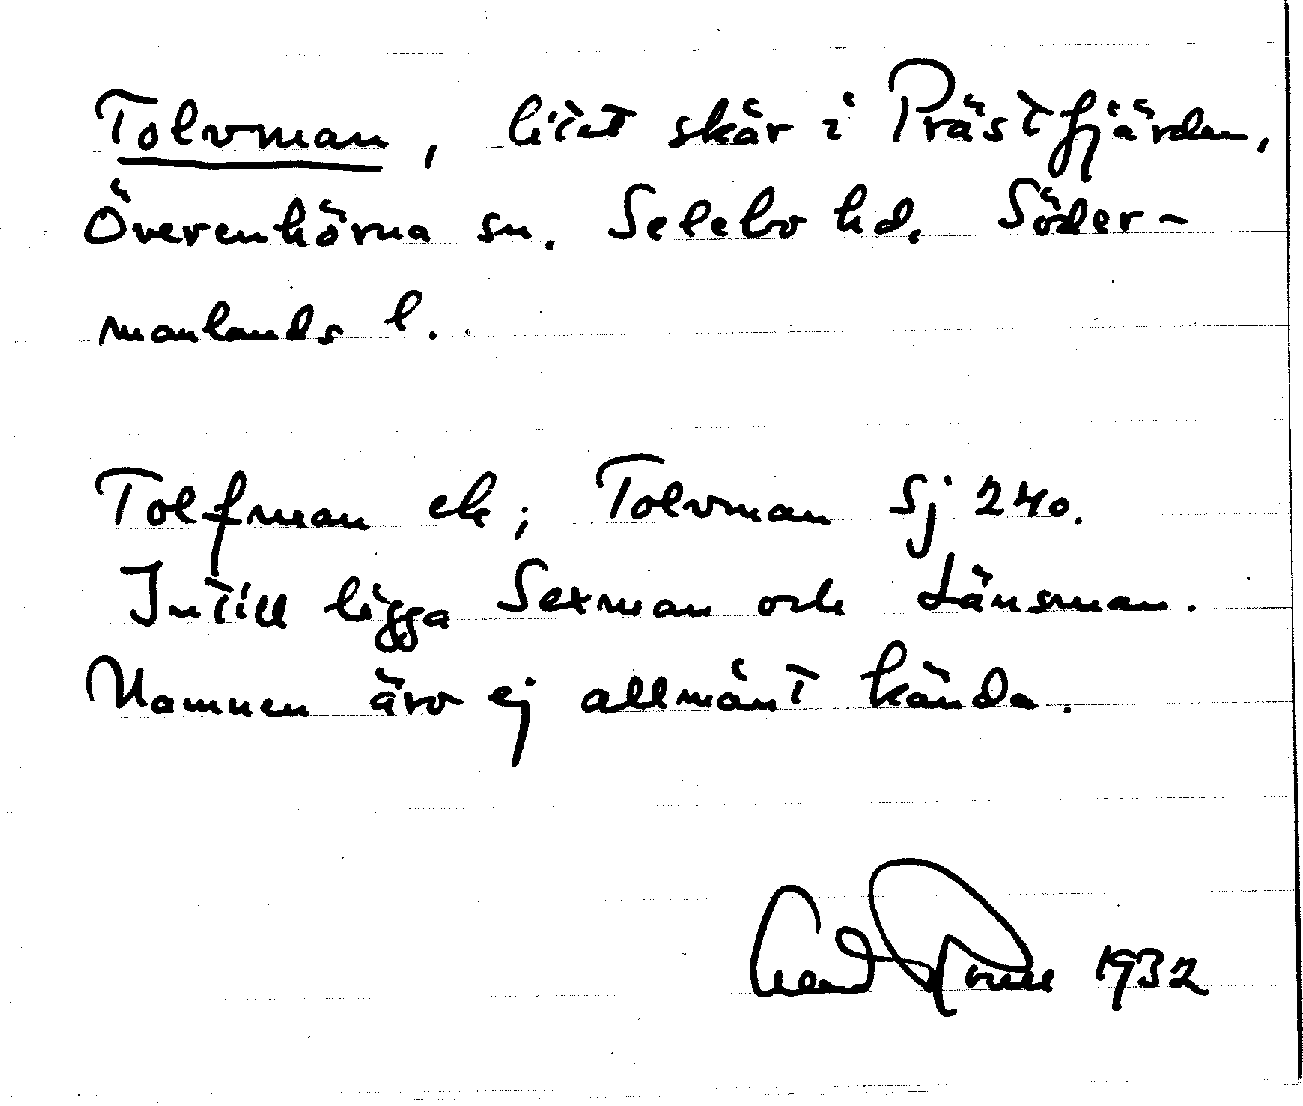 Tolvman, litet skär i Prästfjärden,
Överenhörna sn. Selebo hd. Söder-
manlands l.
Tolfman ek; Tolvman Sj 240.
Intill ligga Sexman och Länsman.
Namnen äro ej allmänt kända.
1932